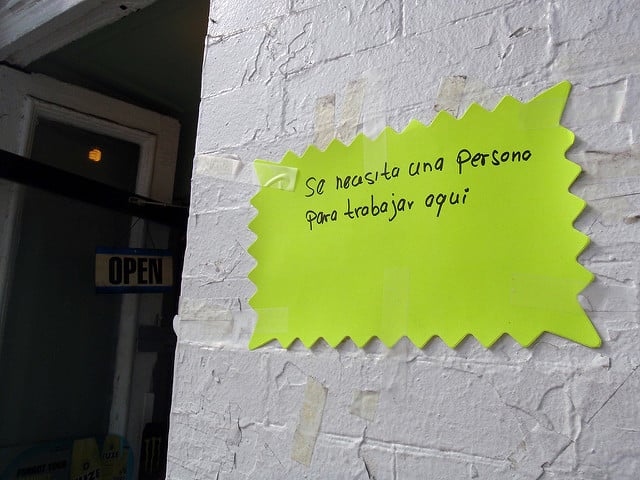 Se necesita una persona
para trabajar aqui
OPEN